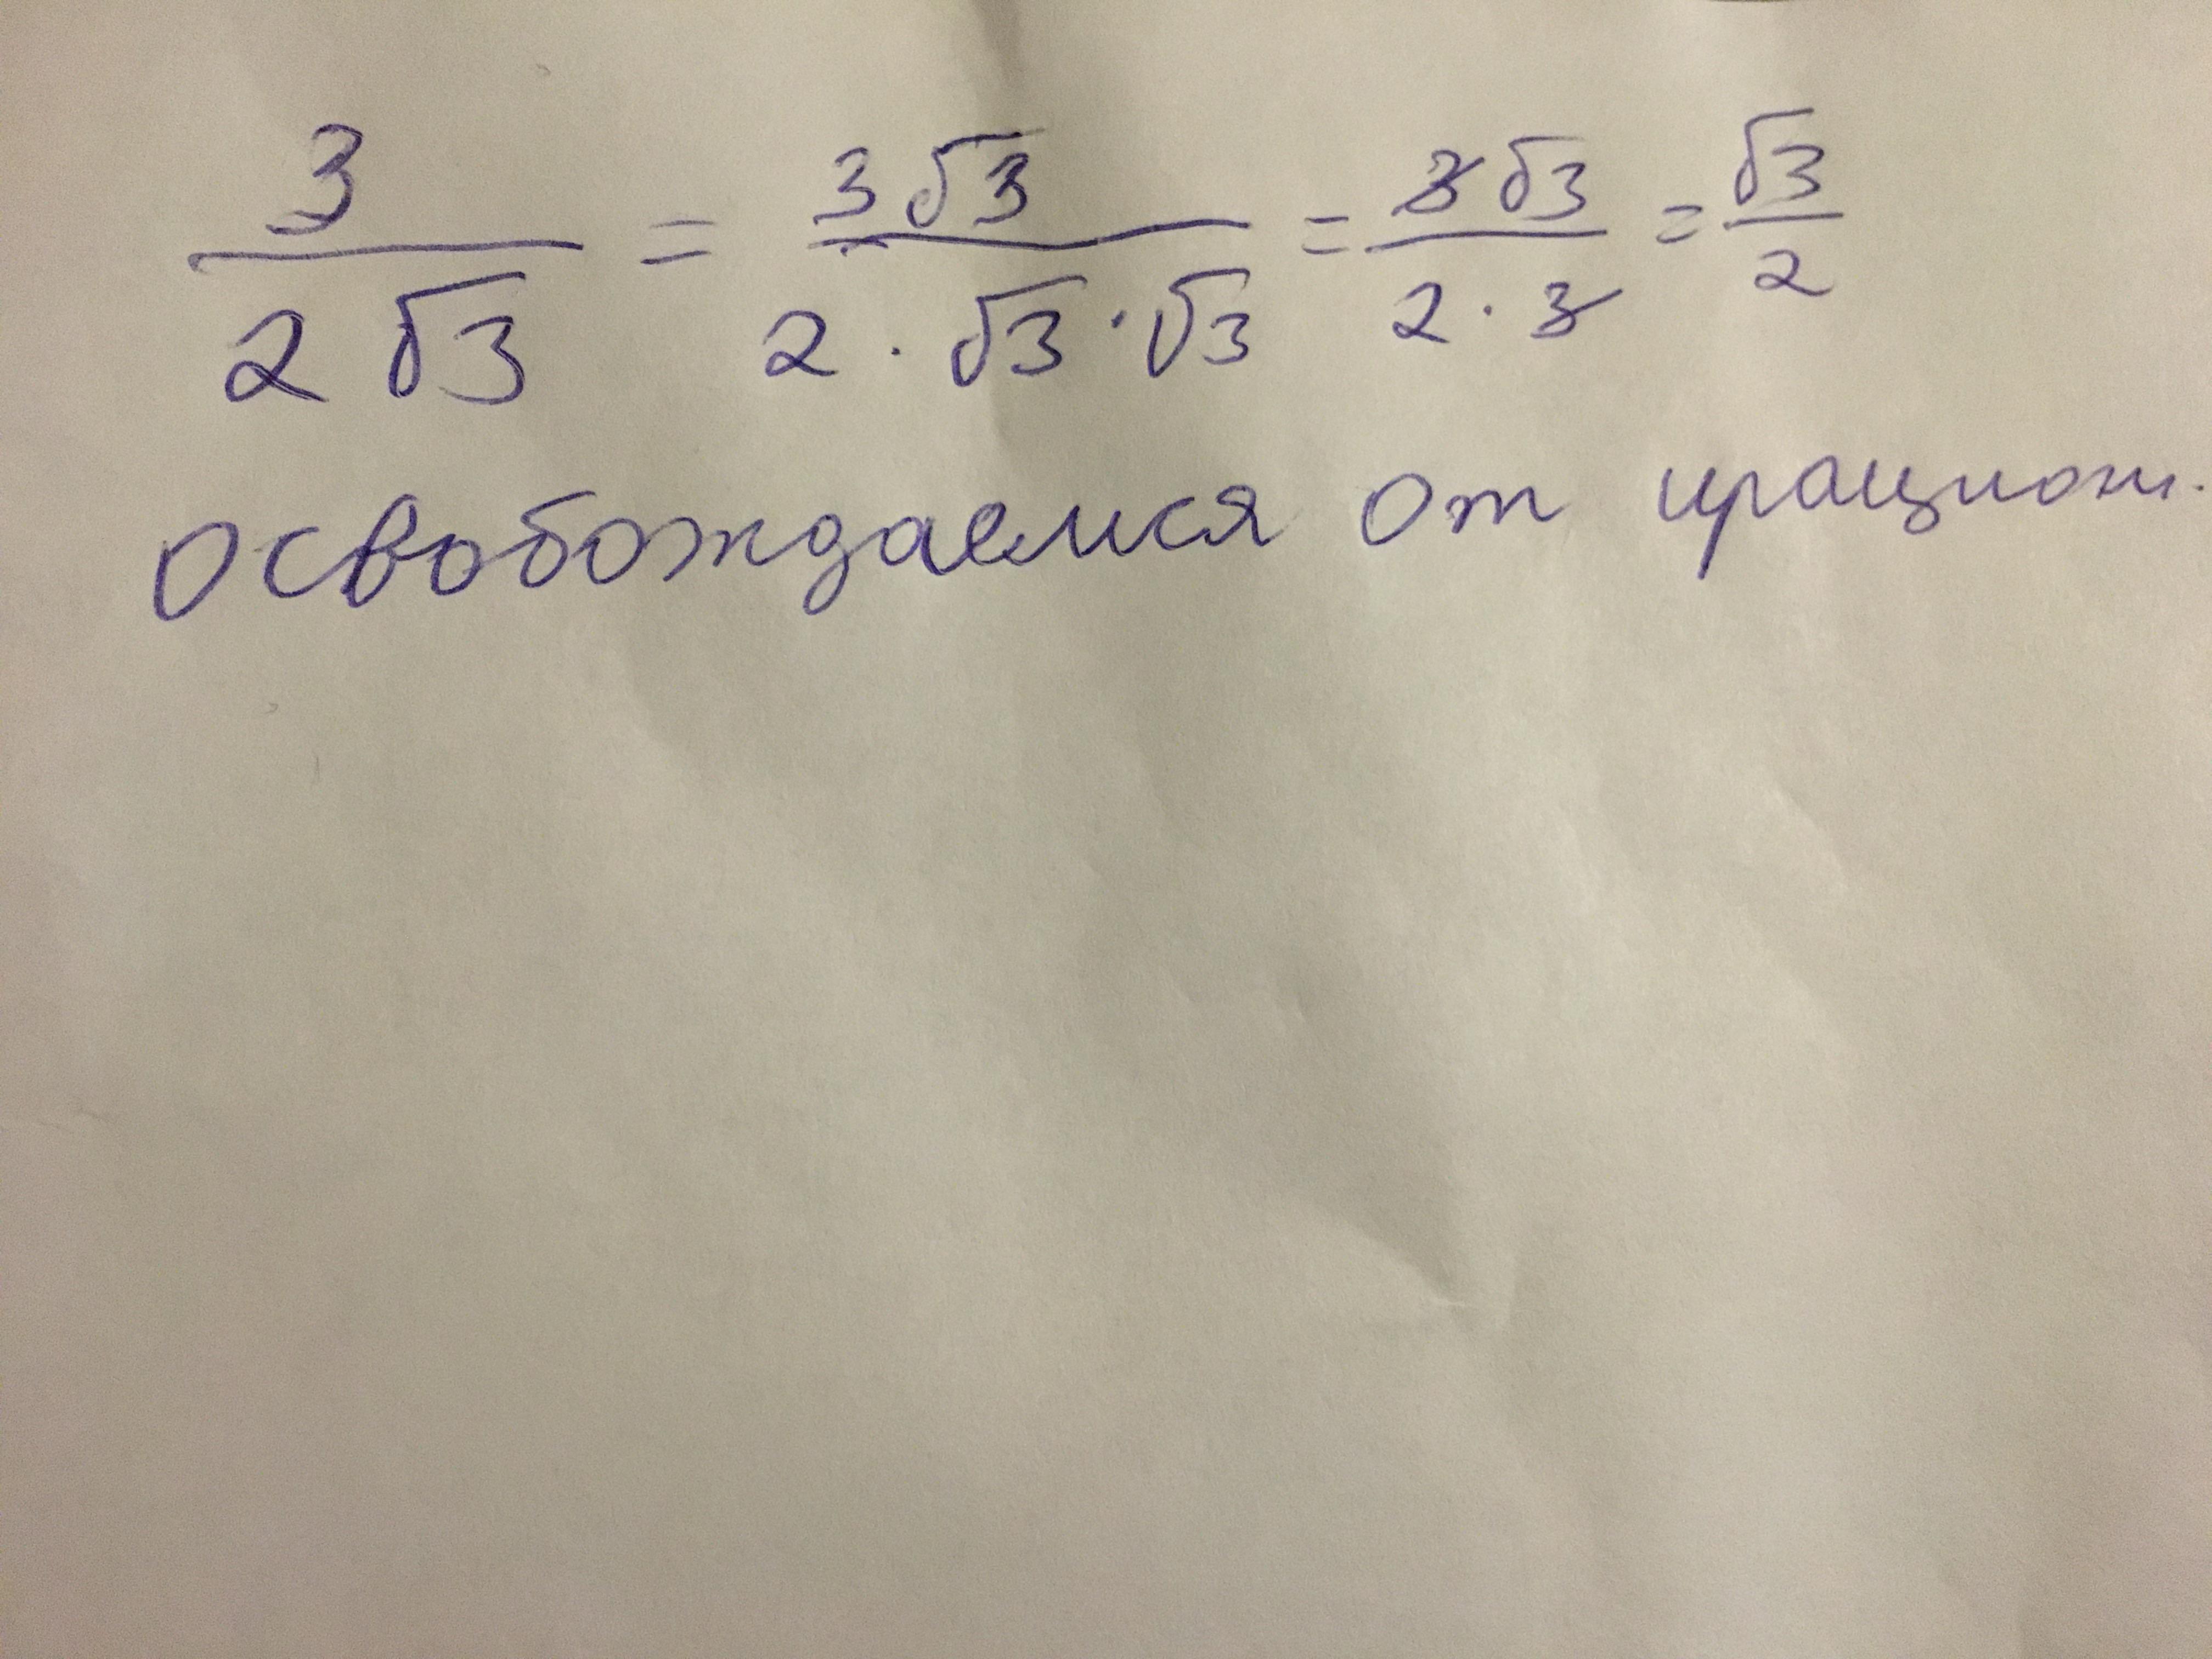 3/(2√3) = 3√3/(2·√3·√3) = 3√3/(2·3) = √3/2
освобождаемся от ирацион.